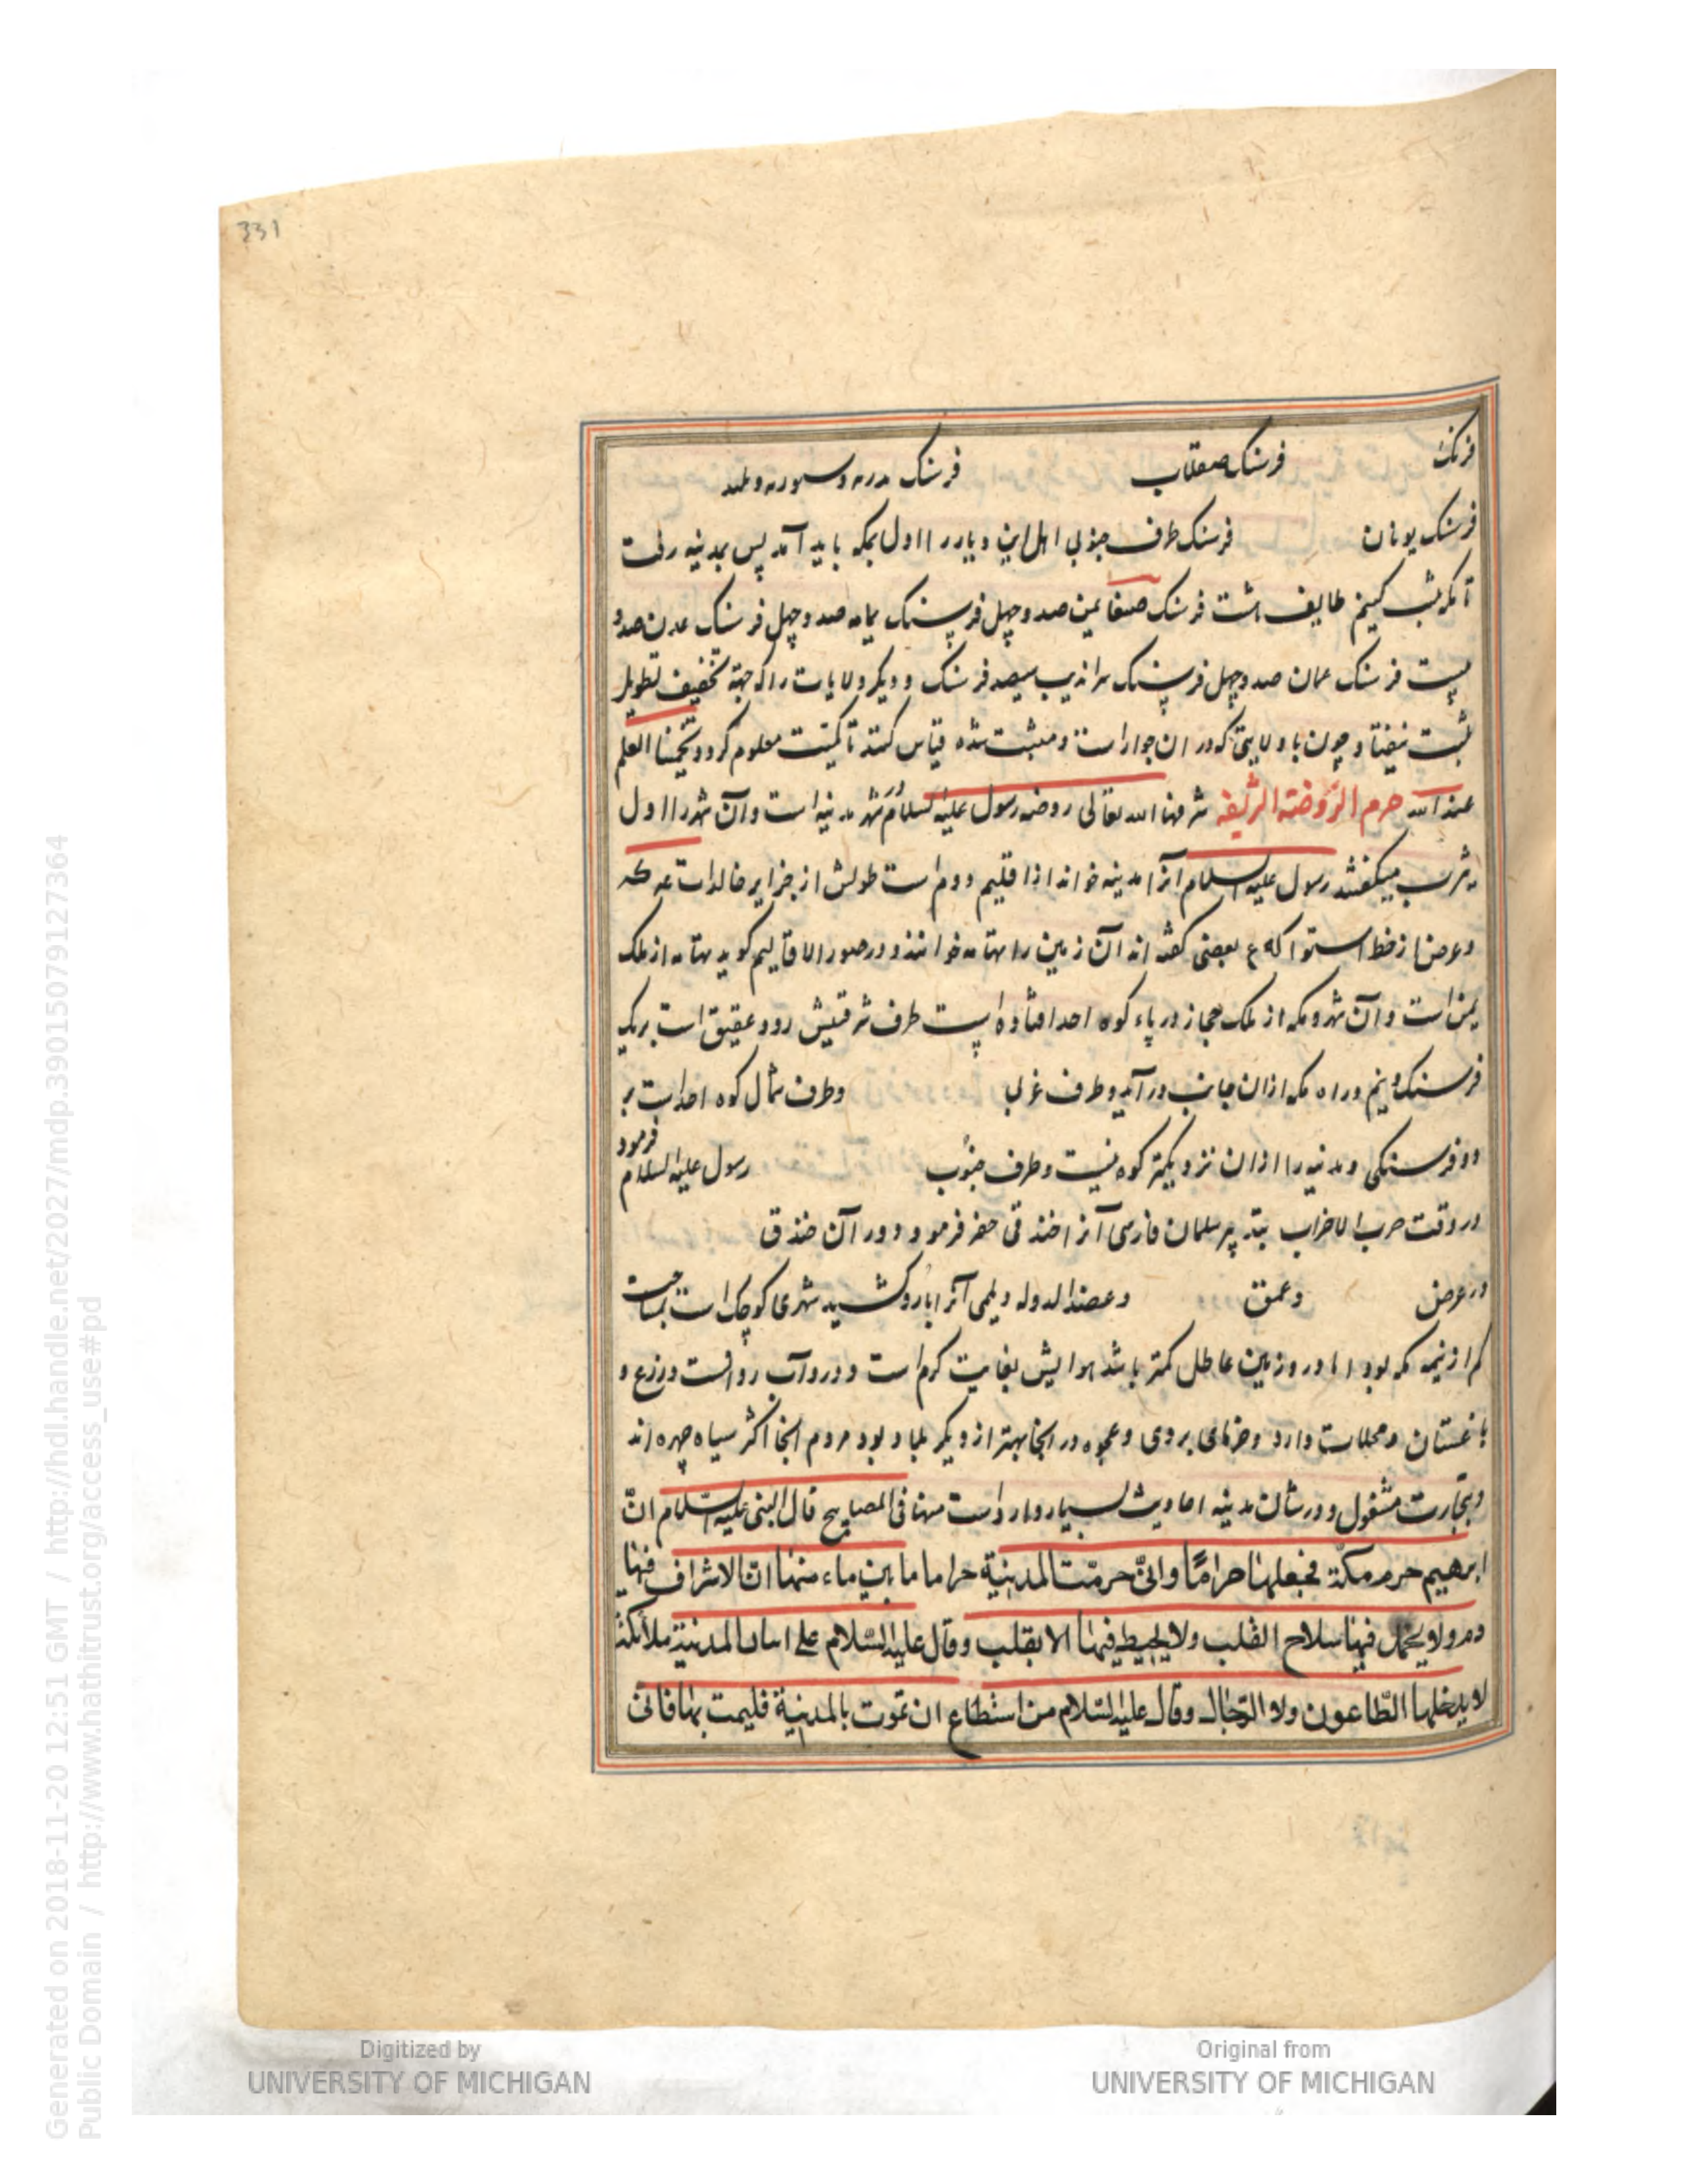 331
فرنک فرسنک صقلاب فرسنک
فرسنک یونان فرسنک طرف جنوبی اهل این دیار را اول بمکه باید آمد پس بمدینه رفت
طایف هشت فرسنک صنعا یمن صد و چهل فرسنک یمامه صد و چهل فرسنک عدن صد و
بیست فرسنک عمان صد و چهل فرسنک سراندیب سیصد فرسنک و دیکر ولایات را که جهة تخفیف تطویل
ثبت نیفتاد چون با ولایتی که در ان جوار است و مثبت شده قیاس کنند تا کمیت معلوم کردد تخمینا العلم
عند الله حرم الروضة الشریفه شرفها الله تعالی روضه رسول علیه السلام شهر مدینه است و آن شهر را اول
یثرب میکفتند رسول علیه السلام آنرا مدینه خواند از اقلیم دوم است طولش از جزایر خالدات عه که
و عرض از خط استوا که ع بعضی کفته اند آن زمین را تهامه خوانند و در صور الاقالیم کوید تهامه از ملک
یمن است و آن شهر و مکه از ملک حجاز در پاء کوه احد افتاده است طرف شرقیش رود عقیق است بر یک
فرسنک و نیم و راه مکه از ان جانب در آید و طرف غربی وطرف شمال کوه احد است بر
دو فرسنکی و مدینه را از ان نزدیکتر کوه نیست و طرف جنوب رسول علیه السلام فرمود
در وقت حرب الاحزاب بتدبیر سلمان فارسی آنرا خندقی حفر فرمود و دور آن خندق
در عرض وعمق وعضد الدوله دیلمی آنرا بارو کشید شهری کوچک است بمساحت
کم از نیمه مکه بود اما درو زمین عاطل کمتر باشد هوایش بغایت کرم است و درو آب روانست و زرع و
باغستان و محلات دارد و خرمای بردی و عجوه در انجا بهتر از دیکر بلاد بود مردم انجا اکثر سیاه چهره اند
و بتجارت مشغول و در شان مدینه احادیث بسیار وارد است منها فی المصابیح قال النبی علیه السلام ان
ابرهیم حرم مکة فجعلها حراما وانی حرمت المدینة حراما ما بین
دم ولا یحمل فیها سلاح ولا یخبط فیها الا وقال علیه السلام علی المدینة ملائکة
لا یدخلها الطاعون ولا الدجال وقال علیه السلام من استطاع ان تموت بالمدینة فلیمت بها فانی
Digitized by
UNIVERSITY OF MICHIGAN
Original from
UNIVERSITY OF MICHIGAN
Generated on 2018-11-20 12:51 GMT / http://hdl.handle.net/2027/mdp.39015079127364
Public Domain / http://www.hathitrust.org/access_use#pd